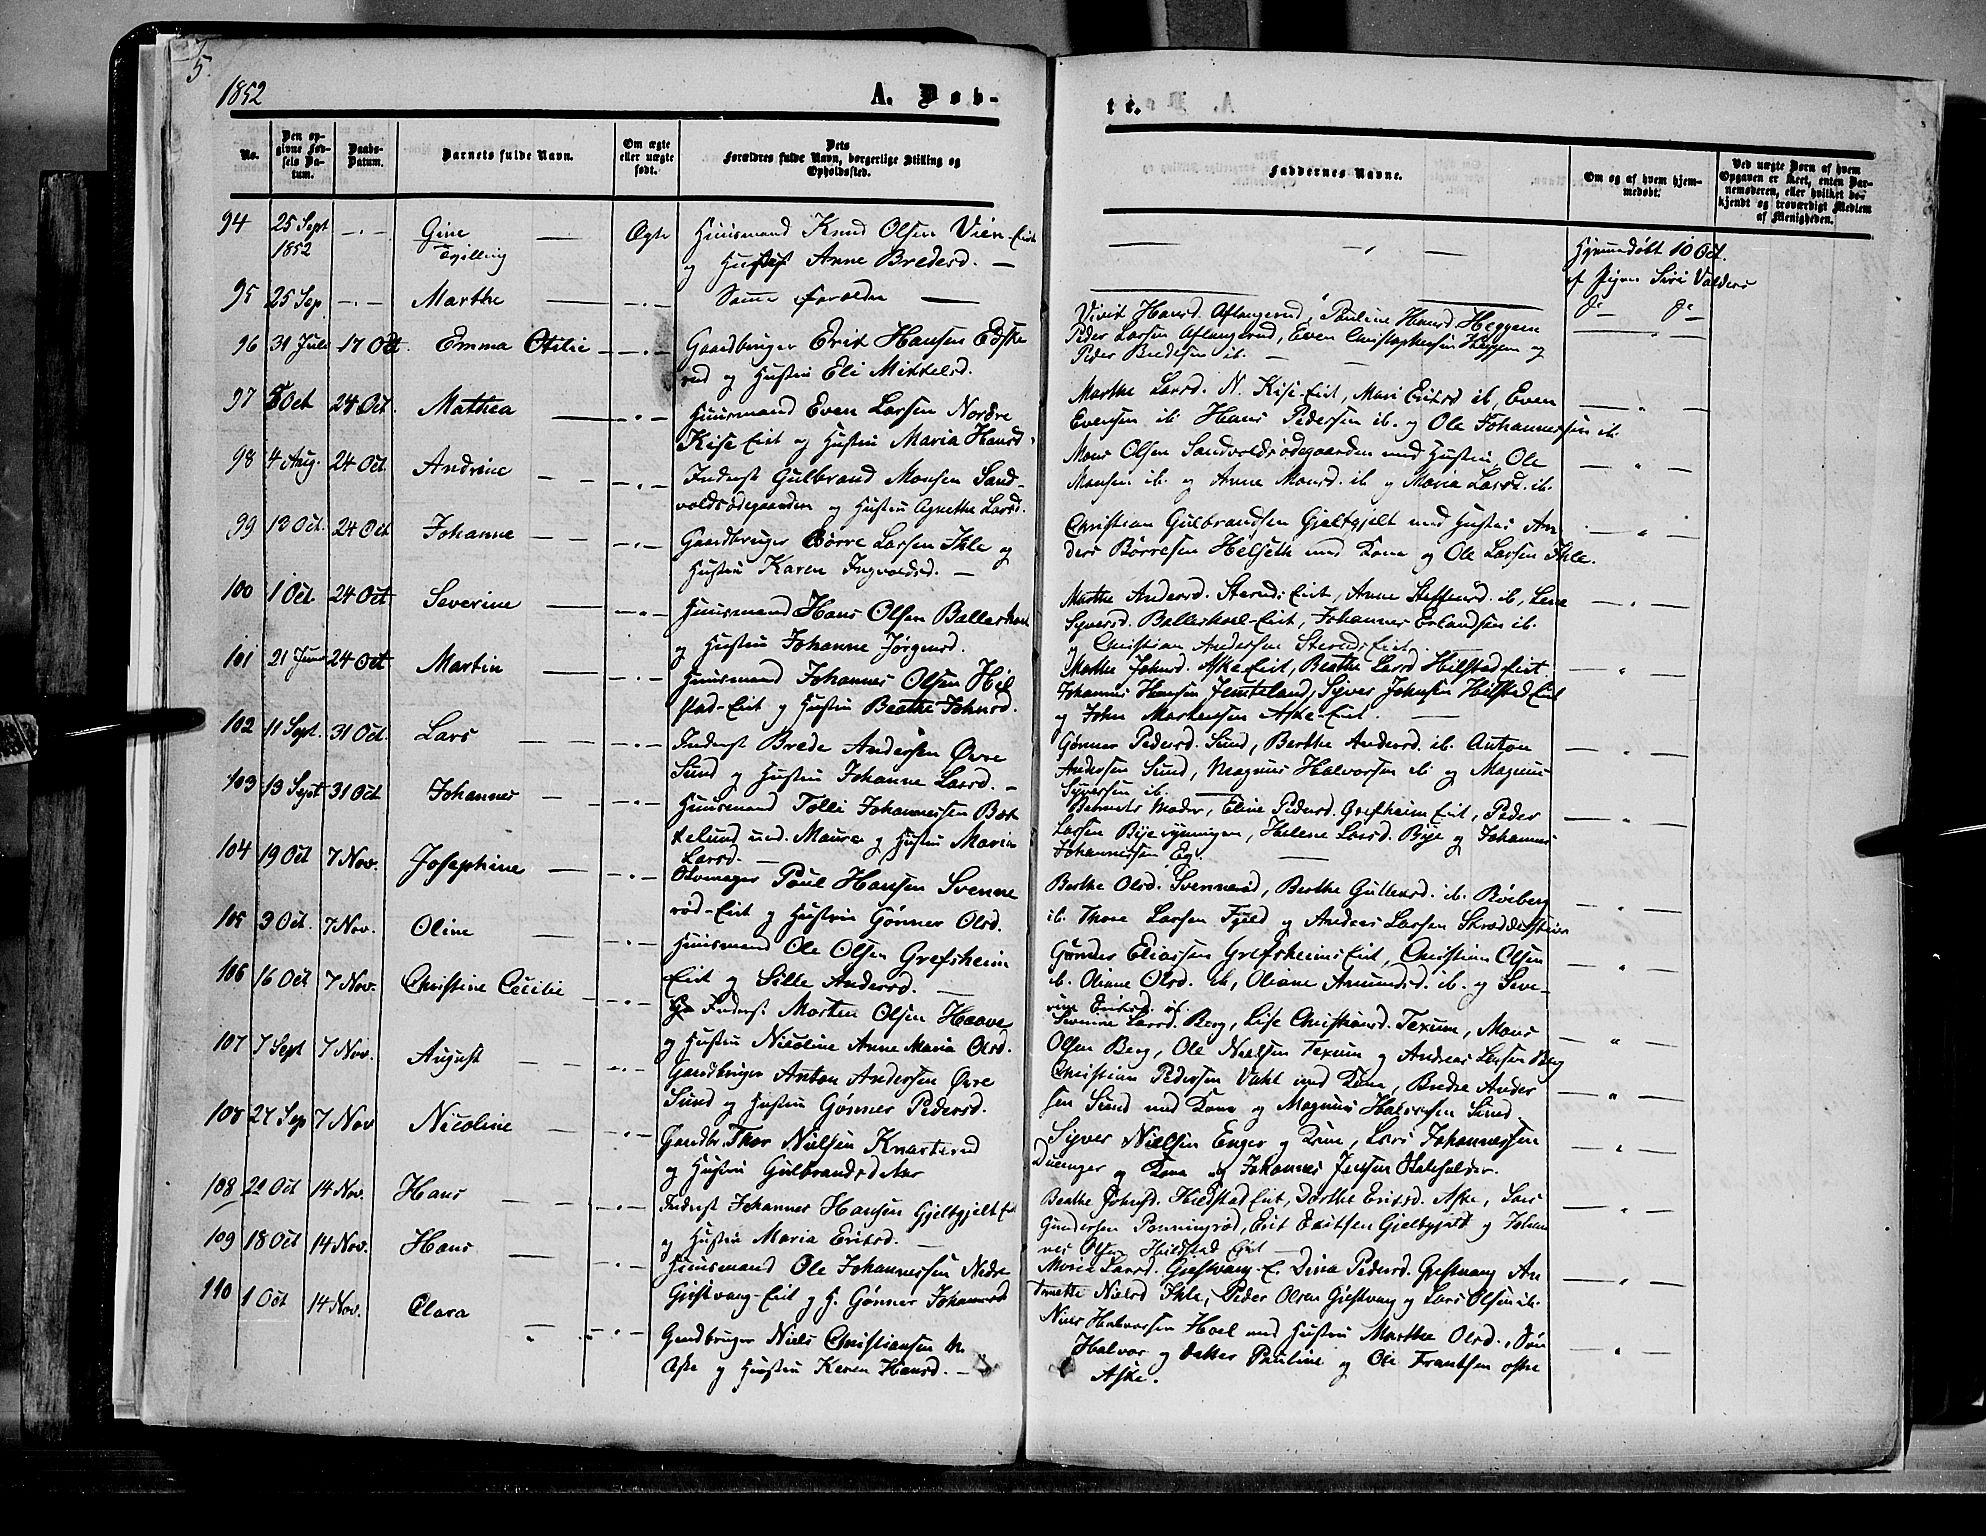 5
1852
A. Døb-
te.
No.
Den op-
givne Fød-
sels Da-
tum.
Daabs-
Datum.
Barnets fulde Navn.
Om ægte
eller uægte
født.
Dets
Forældres fulde Navn, borgerlige Stilling og
Opholdssted.
Faddernes Navne.
Om og af hvem hjem-
medøbt.
Ved uægte Børn af hvem
Opgaven er skeet, enten Bar-
nemoderen, eller hvilket be-
kjendt og troværdigt Medlem
af Menigheden.
94 25 Sept 1852 Gine Tvilling Ægte Huusmand Knud Olsen Vien-Eiet
og Hustru Anne Bredesd.
Hjemmedøbt 10 Oct.
af Pigen Siri Valders
95 25 Sep. Marthe Samme Forældre
Do Do
96 31 Juli 17 Oct. Emma Otilie Gaardbruger Erik Hansen
rud og Hustru Eli Mikkelsd.
Hansd. Aflangerud, Pauline Hansd. Heggem
Peder Larsen Aflangerud, Even Christophersen Heggem og
Peder Bredesen ib.
97 5 Oct 24 Oct. Mathea Huusmand Even Larsen Nordre
Kise Eiet og Hustru Maria Hansd.
Marthe Larsd. N. Kise-Eiet, Mari Eriksd ib, Even
Evensen ib. Hans Pedersen ib. og Ole Johannessen ib.
98 4 Aug. 24 Oct. Andrine Inderst Gulbrand Monsen Sand-
voldsødegaarden og Hustru Agnethe Larsd.
Mons Olsen Sandvoldsødegaarden med Hustru, Ole
Monsen ib. og Anne Monsd. ib og Maria Larsd. ib.
99 12 Oct. 24 Oct Johanne Gaardbruger Børre Larsen Ihle og
Hustru Karen Ingvoldsd.
Christian Gulbrandsen Gjeltgjelt med Hustru An
ders Børresen Helseth med Kone og Ole Larsen Ihle.
100 1 Oct 24 Oct Severine Huusmand Hans Olsen Ballerhoel
og Hustru Johanne Jørgensd.
Marthe Andersd. Eiet, Anne Steffensd. ib, Lene
Syversd. Ballerhoel-Eiet, Johannes Erlandsen ib.
og Christian Andersen Eiet.
101 21 Juni 24 Oct Martin Huusmand Johannes Olsen Hil
stad-Eiet og Hustru Beathe Johnsd.
Mathe Johnsd. Aske-Eiet, Beathe Larsd Hilstad Eiet
Johannes Hansen Jemteland, Syver Johnsen Hilstad Eiet
og John Mortensen Aske-Eiet.
102 11 Sept. 31 Oct. Lars Inderst Brede Andersen Øvre
Sund og Hustru Johanne Larsd.
Gønner Pedersd. Sund, Berthe Andersd. ib. Anton
Andersen Sund, Magnus Halvorsen ib og Magnus
Syversen ib.
103 13 Sept 31 Oct Johannes Huusmand Tolli Johannessen Bæk
kelund und. Maure og Hustru Maria
Larsd.
Barnets Moder, Eline Pedersd. Grefsheim Eiet, Peder
Larsen Bye, Helene Larsd. Bye og Johannes
Johannessen Eg.
104 19 Oct 7 Nov. Josephine Poul Hansen Svenne
rød-Eiet og Hustru Gønner Olsd.
Berthe Olsd. Svennerød, Berthe ib. Roeberg
ib. Thore Larsen Fjeld og Anders Larsen
105 3 Oct. 7 Nov. Oline Huusmand Ole Olsen Grefsheim
Eiet og Sille Andersd.
Gønder Eliassen Grefsheims Eiet, Christian Olsen
ib. Oliane Olsd. ib, Oliane Amundsd. ib. og Seve-
rine Eriksd. ib.
106 16 Oct 7 Nov. Christine Cecilie Inderst Morten Olsen Haave
og Hustru Nicoline Anne Maria Olsd.
Severine Larsd. Berg, Lise Christiansd. Texum, Mons
Olsen Berg, Ole Nielsen Texum og Andreas Larsen Berg
107 7 Sept 7 Nov. August Gaardbruger Anton Andersen Øvre
Sund og Hustru Gønner Pedersd.
Christian Pedersen Vahl med Kone, Brede Ander
sen Sund med Kone og Magnus Halvorsen Sund.
108 27 Sep 7 Nov Nicoline Gaardbr. Thor Nielsen Knarterud
og Hustru Gulbrandsd
Syver Nielsen Enger og Kone, Lars Johannessen
og Kone og Johannes Jensen
108 22 Oct 14 Nov. Hans Inderst Johannes Hansen Gjeltgjelt Eiet
og Hustru Maria Eriksd.
Beathe Johnsd. Hildstad Eiet, Dorthe Eriksd. Aske, Lars
Gundersen Ponningrød, Erik Gjeltgjelt og Johan
nes Olsen Hildstad Eiet
109 18 Oct 14 Nov. Hans Huusmand Ole Johannessen Nedre
Gjestvang-Eiet og H. Gønner Johannesd
Maria Larsd. Gjestvang-E. Dina Pedersd. Gjestvang An
Nielsd Ihle, Peder Olsen Gjestvang og Lars Olsen ib.
110 1 Oct 14 Nov. Clara Gardbruger Niels Christiansen
Aske og Hustru Karen Hansd.
Niels Halvorsen Hoel med Hustru Marthe Olsd.
Halvor og Datter Pauline og Ole Frantsen
Aske.